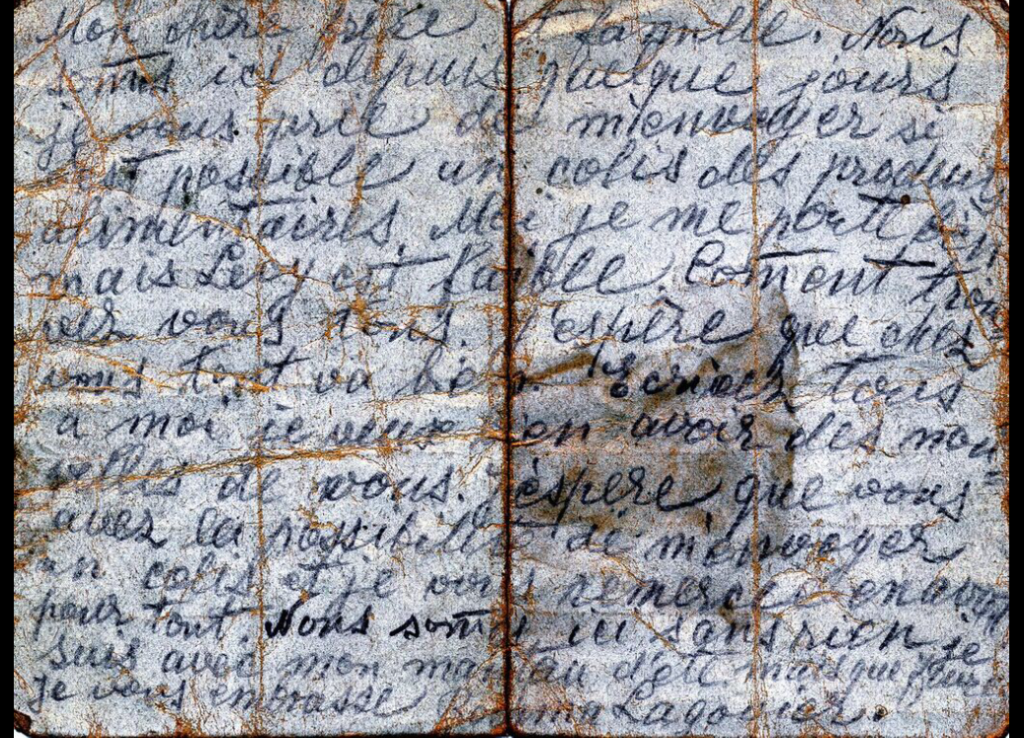 Mon chère frère et famille. Nous
somes ici depuis quelque jours
je vous prie de m'envoyer si
c'est possible un colis des produits
alimentaires. Moi je me porte bien
mais Lery est faible. Coment trou
vez vous tous. J'espère que chez
vous tout va bien. Ecrivez tous
a moi je veux bien avoir des nou
velles de vous. J'éspere que vous
avez la possibilité de m'envoyer
un colis et je vous remercie
pour tout. Nous somes ici sans rien je
suis avec mon manteau d'été mais que
je vous embrasse